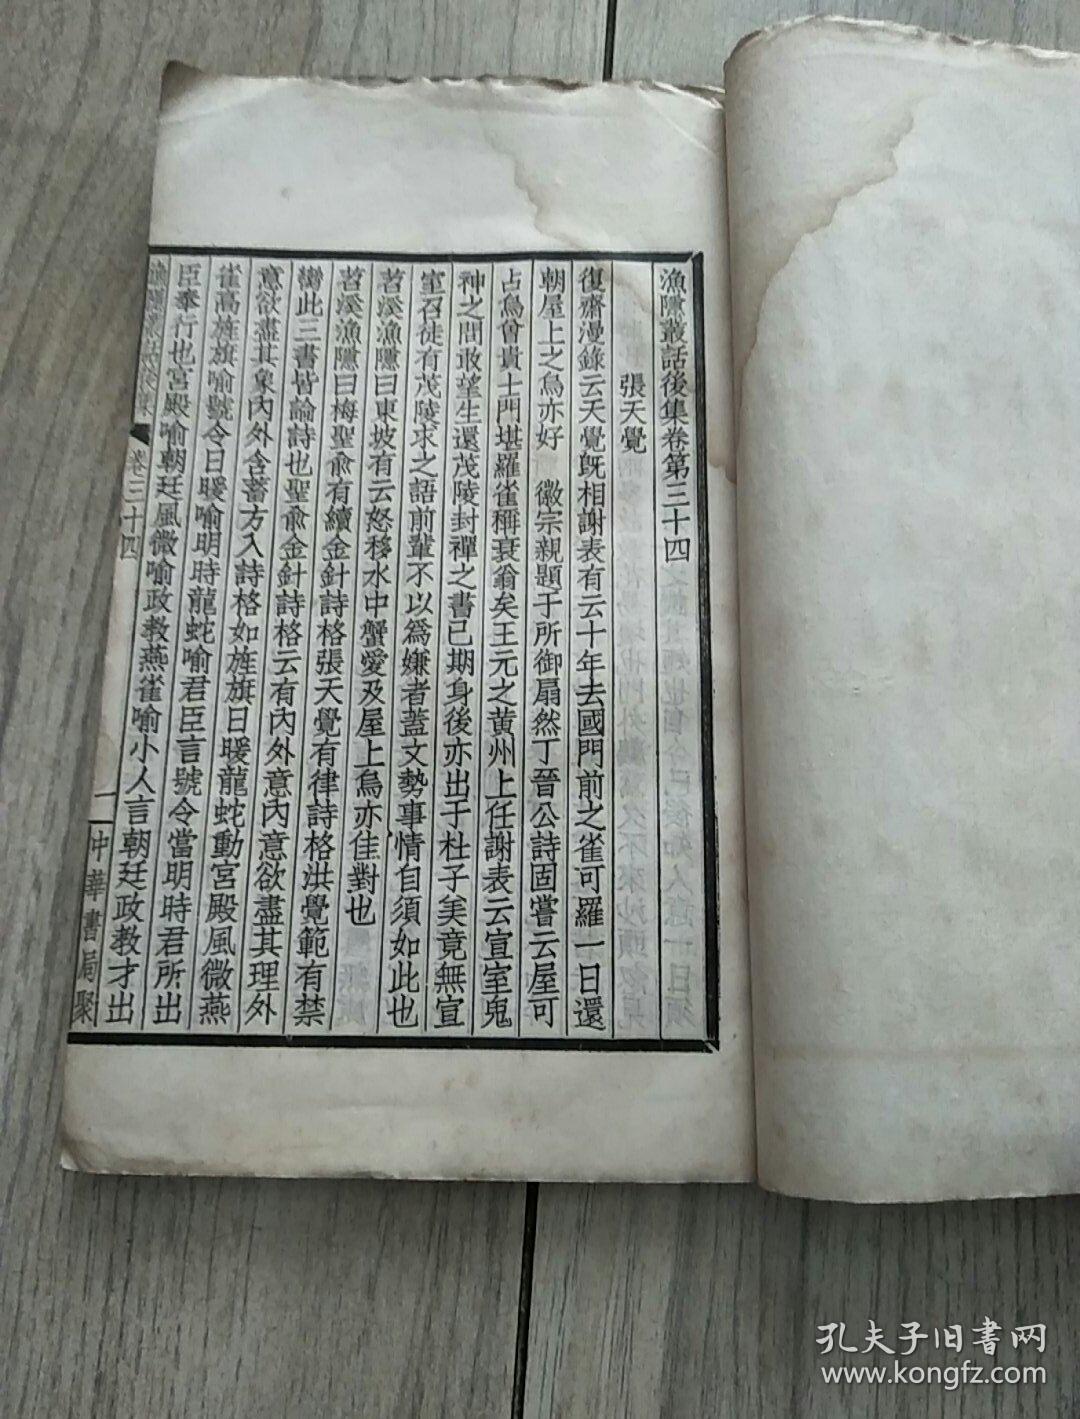 漁隱叢話後集卷第三十四
張天覺
復齋漫錄云天覺旣相謝表有云十年去國門前之雀可羅一日還
朝屋上之烏亦好 徽宗親題于所御扇然丁晉公詩固嘗云屋可
占烏曾貴上門堪羅雀稱衰翁矣王元之黄州上任謝表云宣室鬼
神之問敢望生還茂陵封禪之書已期身後亦出于杜子美竟無宣
室召徒有茂陵求之語前輩不以爲嫌者蓋文勢事情自須如此也
苕溪漁隱曰東坡有云怒移水中蟹愛及屋上烏亦佳對也
苕溪漁隱曰梅聖俞有續金針詩格張天覺有律詩格洪覺範有禁
臠此三書皆論詩也聖俞金針詩格云有內外意內意欲盡其理外
意欲盡其象內外含蓄方入詩格如旌旗日暖龍蛇動宮殿風微燕
雀高旌旗喻號令日暖喻明時龍蛇喻君臣言號令當明時君所出
臣奉行也宮殿喻朝廷風微喻政教燕雀喻小人言朝廷政教才出
漁隱叢話後集 卷三十四 一 中華書局聚
孔夫子旧書网
www.kongfz.com